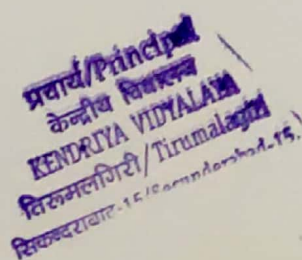 प्राचार्य/Principal
केन्द्रीय विद्यालय
KENDRIYA VIDYALAYA
तिरूमलगिरी/Tirumalagiri
सिकन्दराबाद-15/Secunderabad-15.